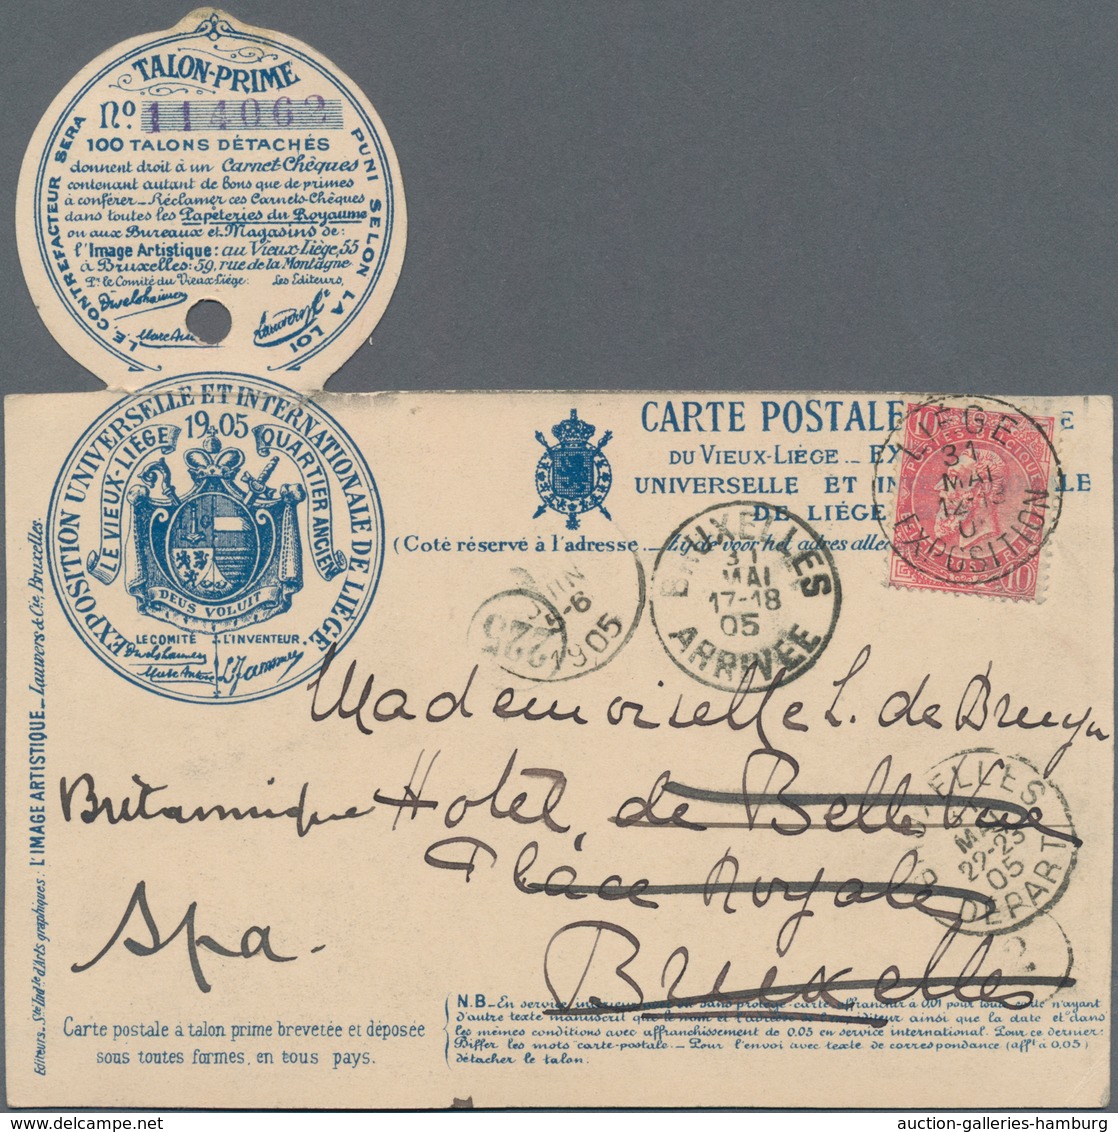 TALON-PRIME
Nº 114062
100 TALONS DÉTACHÉS
donnent droit à un Carnet-Chèques
contenant autant de bons que de primes
à conférer _ Réclamer ces Carnets-Chèques
dans toutes les Papeteries du Royaume
ou aux Bureaux et Magasins de:
l'Image Artistique: au Vieux-Liège, 55
à Bruxelles: 59, rue de la Montagne
Pr le Comité du Vieux-Liège: Les Editeurs,
LE CONTREFACTEUR SERA PUNI SELON LA LOI
EXPOSITION UNIVERSELLE ET INTERNATIONALE DE LIÈGE
1905
LE VIEUX-LIÈGE QUARTIER ANCIEN
DEUS VOLUIT
LE COMITÉ L'INVENTEUR
CARTE POSTALE
DU VIEUX-LIÈGE _ EX
UNIVERSELLE ET IN LE
DE LIÈGE
(Coté réservé à l'adresse _ Zyde voor het adres
10 10
LIÈGE
31
MAI
EXPOSITION
BRUXELLES
31
MAI
17-18
05
ARRIVÉE
JUIN
6
1905
225
Mademoiselle L. de Bruyn
Britannique Hotel de Belle Vue
Place Royale
Spa. Bruxelles
BRUXELLES
MAI
22-23
05
DEPART
2
Editeurs _ Sté Indle d'Arts graphiques: L'IMAGE ARTISTIQUE _ Lauwers & Cie, Bruxelles
Carte postale à talon prime brevetée et déposée
sous toutes formes, en tous pays.
N.B _ En service intérieur sans protège-carte affranchir à 0,01 pour toute carte n'ayant
d'autre texte manuscrit que le nom et l'adresse de l'expéditeur ainsi que la date et dans
les mêmes conditions avec affranchissement de 0.05 en service international. Pour ce dernier:
Biffer les mots carte-postale _ Pour l'envoi avec texte de correspondance (afft à 0,05)
détacher le talon.
auction-galleries-hamburg.com